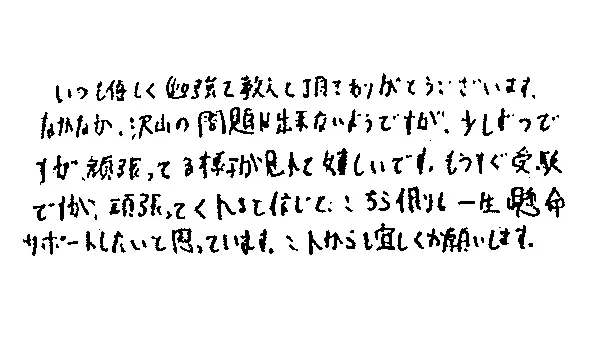 いつも優しく勉強を教えて頂きありがとうございます。
なかなか、沢山の問題は出来ないようですが、少しずつで
すが、頑張ってる様子が見れて嬉しいです。もうすぐ受験
ですが、頑張ってくれると信じて、こちら側も一生懸命
サポートしたいと思っています。これからも宜しくお願いします。